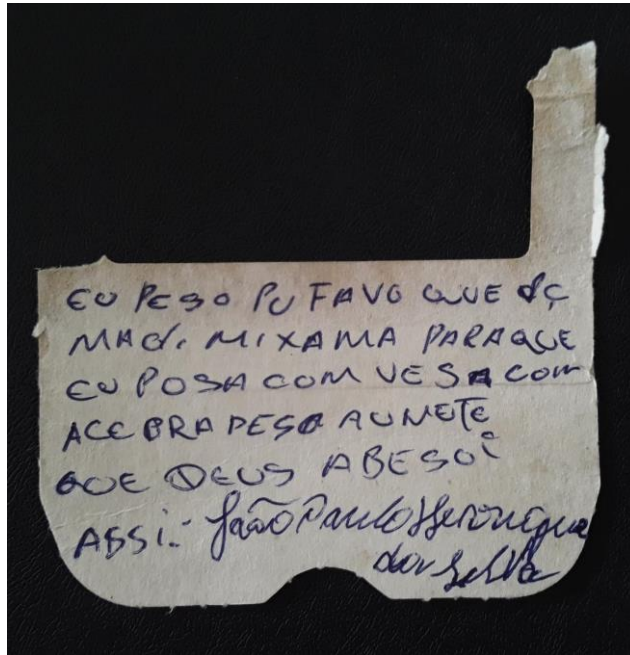 EU PESO PU FAVO QUE
MIXAMA PARAQUE
EU POSA COM VESA COM
ACE BRA PESOA AUMETE
QUE DEUS ABESOI
ASSI.: João Paulo
da Silva